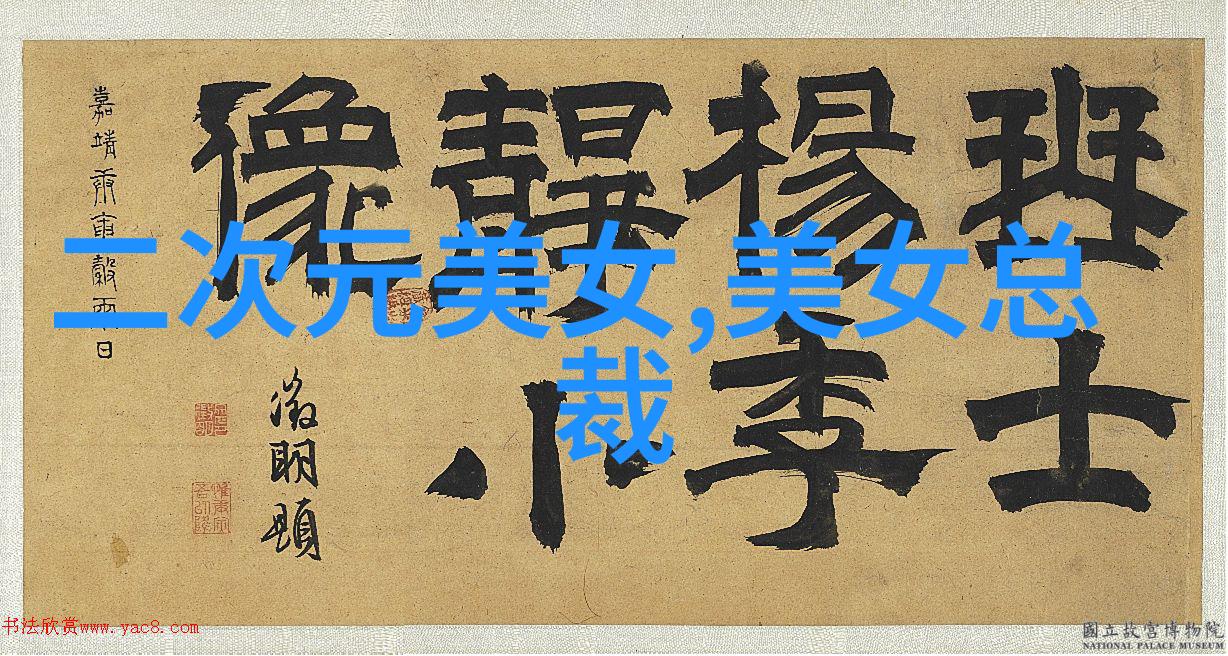 琴士
楊季
靜小
像
嘉靖庚寅穀雨日
徵明題
二次元美女,美女总
裁
书法欣赏www.yac8.com
國立故宮博物院
NATIONAL PALACE MUSEUM